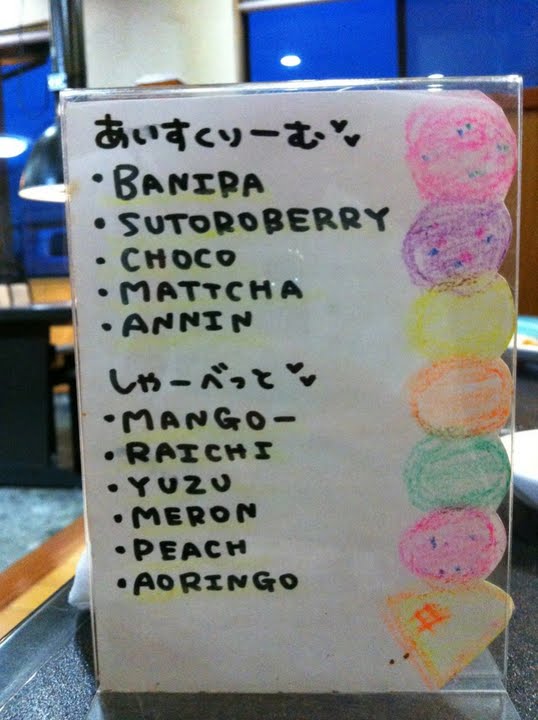 あいすくりーむ♥♥
・BANIRA
・SUTOROBERRY
・CHOCO
・MATTCHA
・ANNIN
しゃーべっと♥♥
・MANGOー
・RAICHI
・YUZU
・MERON
・PEACH
・AORINGO